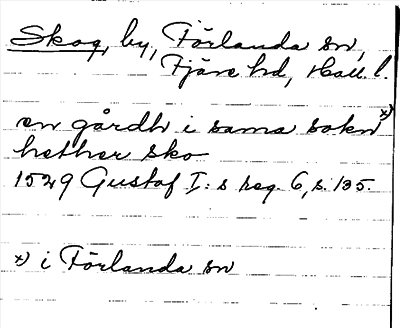 Skog, by, Förlanda sn,
Fjäre hd, Hall. l.
en gårdh i sama sokn x)
hether sko
1529 Gustaf I:s reg. 6, s. 135.
x) i Förlanda sn